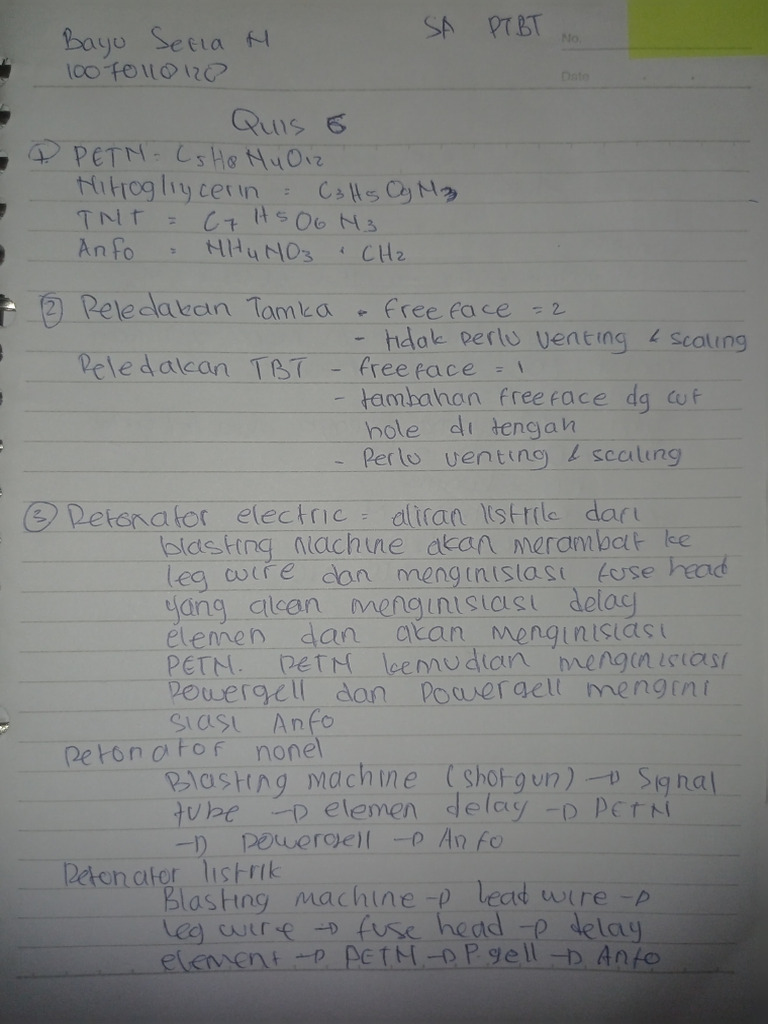 Bayu Setia N
SA PTBT
No.
10070110120
Date
Quis 5
① PETN = C5H8N4O12
Nitrogliycerin = C3H5O9N3
TNT = C7H5O6N3
Anfo = NH4NO3 . CH2
② Peledakan Tamka - freeface = 2
- tidak perlu venting & scaling
Peledakan TBT - freeface = 1
- tambahan freeface dg cut
hole di tengah
- Perlu venting & scaling
③ Detonator electric = aliran listrik dari
blasting machine akan merambat ke
leg wire dan menginisiasi fuse head
yang akan menginisiasi delay
elemen dan akan menginisiasi
PETN. PETN kemudian menginisiasi
Powergell dan Powergell mengini
siasi Anfo
Detonator nonel
Blasting machine (shotgun) → Signal
tube → elemen delay → PETN
→ powergell → Anfo
Detonator listrik
Blasting machine → lead wire →
leg wire → fuse head → delay
element → PETN → P.gell → Anfo